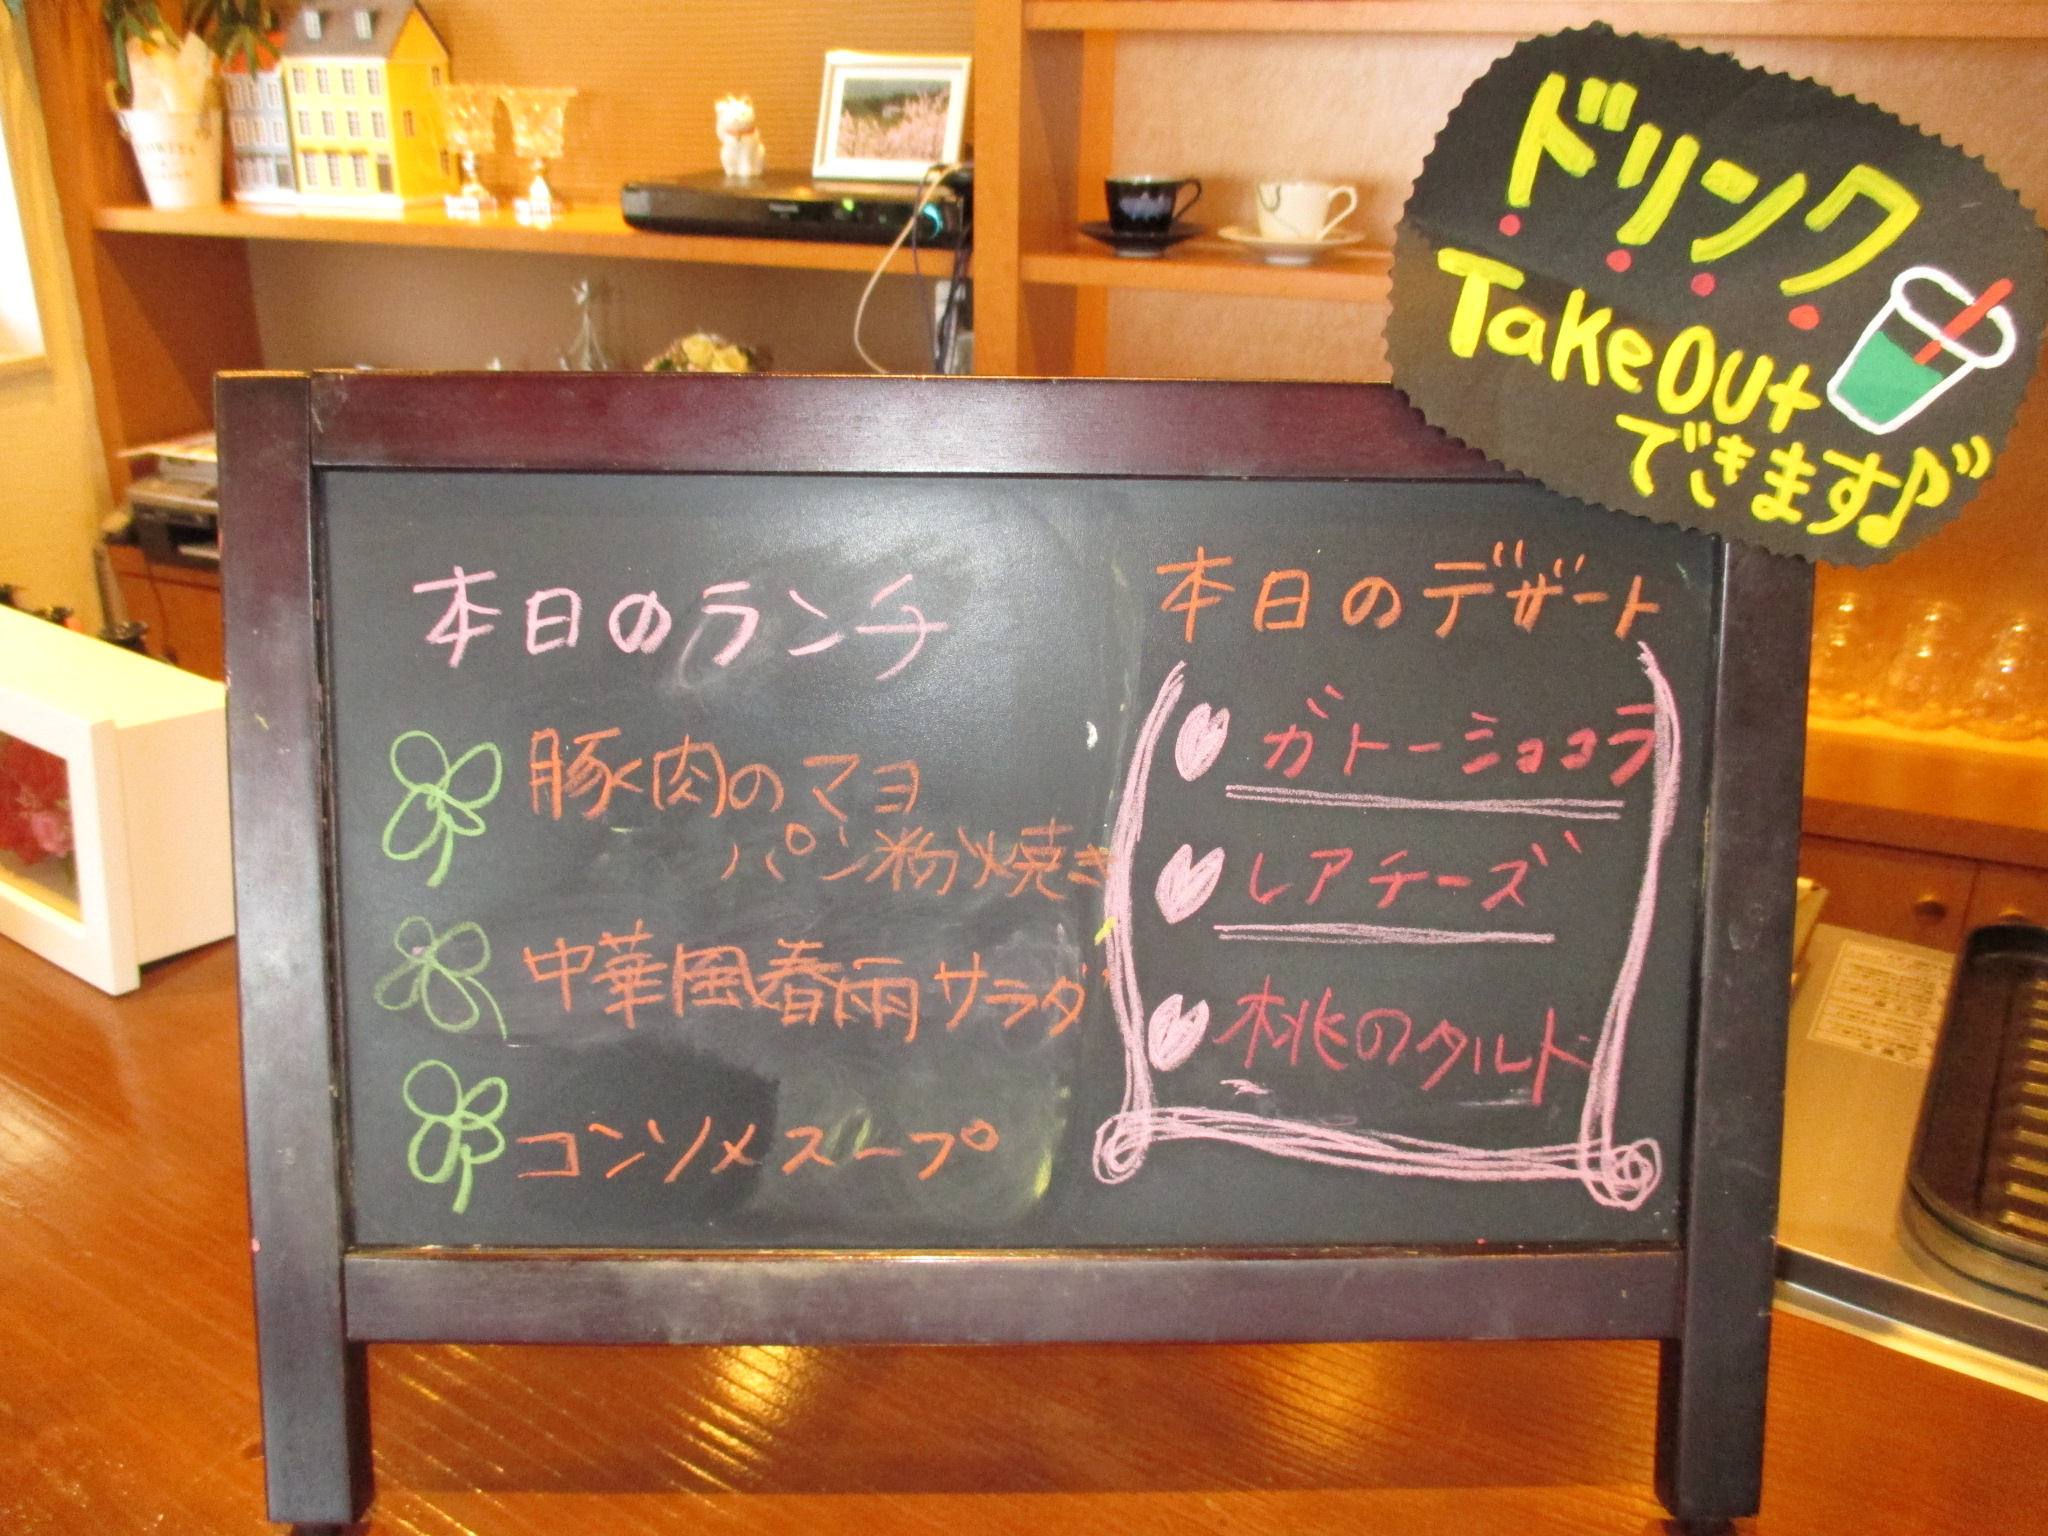 ドリンク
TakeOut
できます♪
本日のランチ
豚肉のマヨ
パン粉焼き
中華風春雨サラダ
コンソメスープ
本日のデザート
ガトーショコラ
レアチーズ
桃のタルト